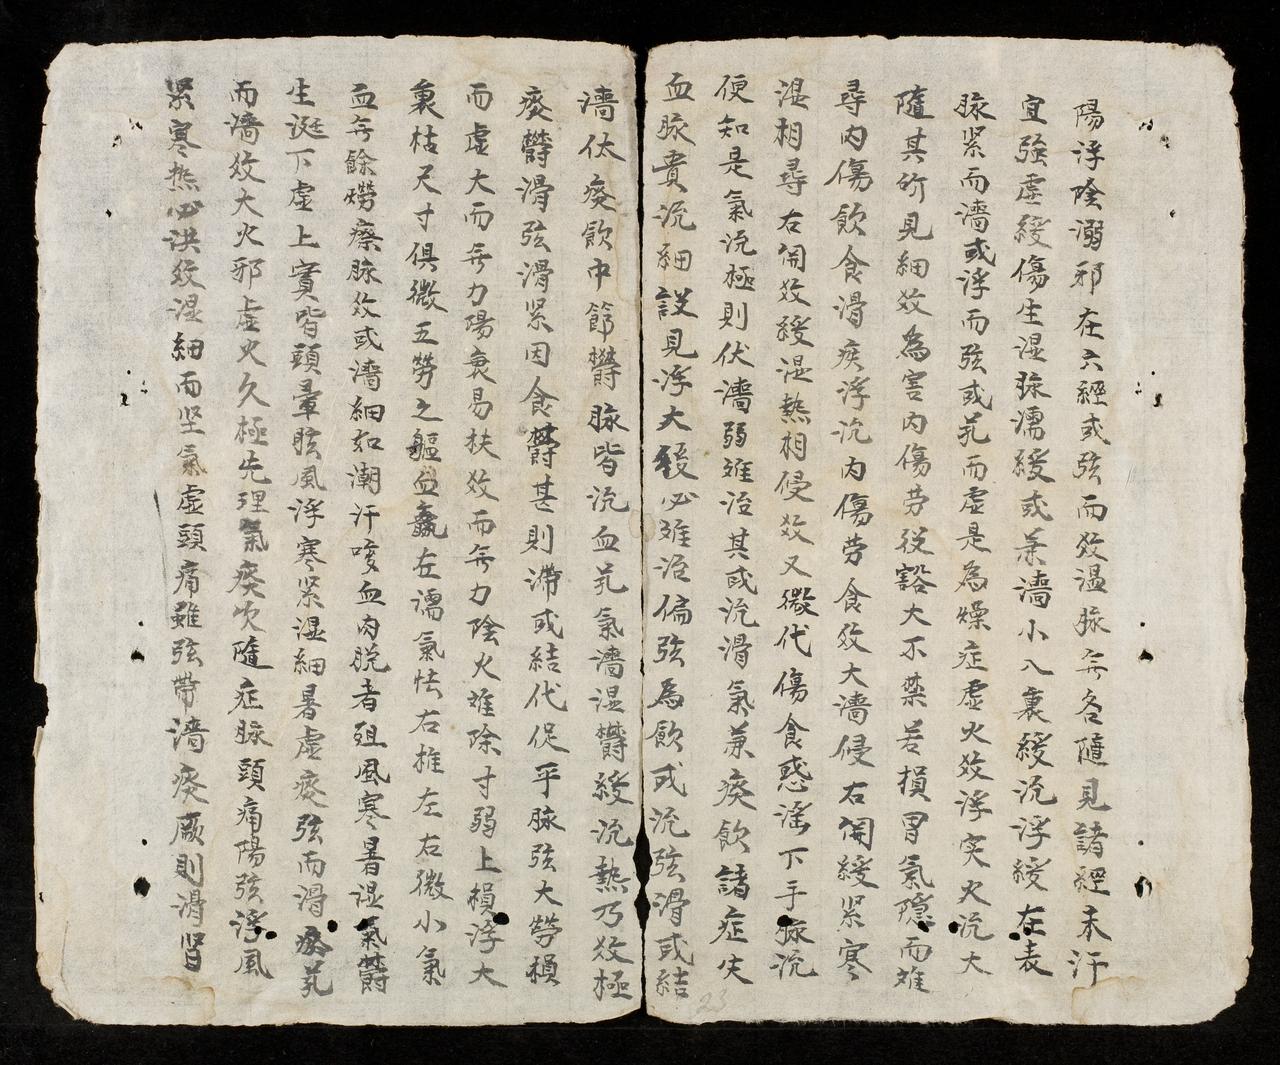 陽浮陰溺邪在六經或弦而效温脉无各隨見諸經未汗
宜強虚緩傷生湿脉濡緩或兼濇小入裏緩沉浮緩在表
脉紧而濇或浮而弦或芤而虚是為燥症虚火效浮实火沉大
隨其所見細效為害内傷劳役豁大不禁若損胃氣隱而难
尋内傷飲食滑疾浮沉内傷劳食效大濇侵右関緩紧寒
湿相尋右関效緩湿熱相侵效又微代傷食感滛下手脉沉
便知是氣沉極則伏濇弱难治其或沉滑氣兼痰飲諸症失
血脉貴沉細設見浮大緩必难治偏弦為飲或沉弦滑或結
濇伏痰飲中節欝脉皆沉血芤氣濇湿欝緩沉熱乃效極
痰欝滑弦滑紧因食欝甚則滞或結代促乎脉弦大勞損
而虚大而无力陽衰易扶效而无力陰火难除寸弱上損浮大
裏枯尺寸俱微五勞之軀血羸左濡氣怯右推左右微小氣
血无餘癆瘵脉效或濇細如潮汗咳血肉脱者殂風寒暑湿氣欝
生涎下虚上實皆頭暈眩風浮寒紧湿細暑虚痰弦而滑瘀芤
而濇效大火邪虚火久極先理氣痰次隨症脉頭痛陽弦浮風
紧寒热必洪效湿細而坚氣虚頭痛雖弦帶濇痰厥則滑肾